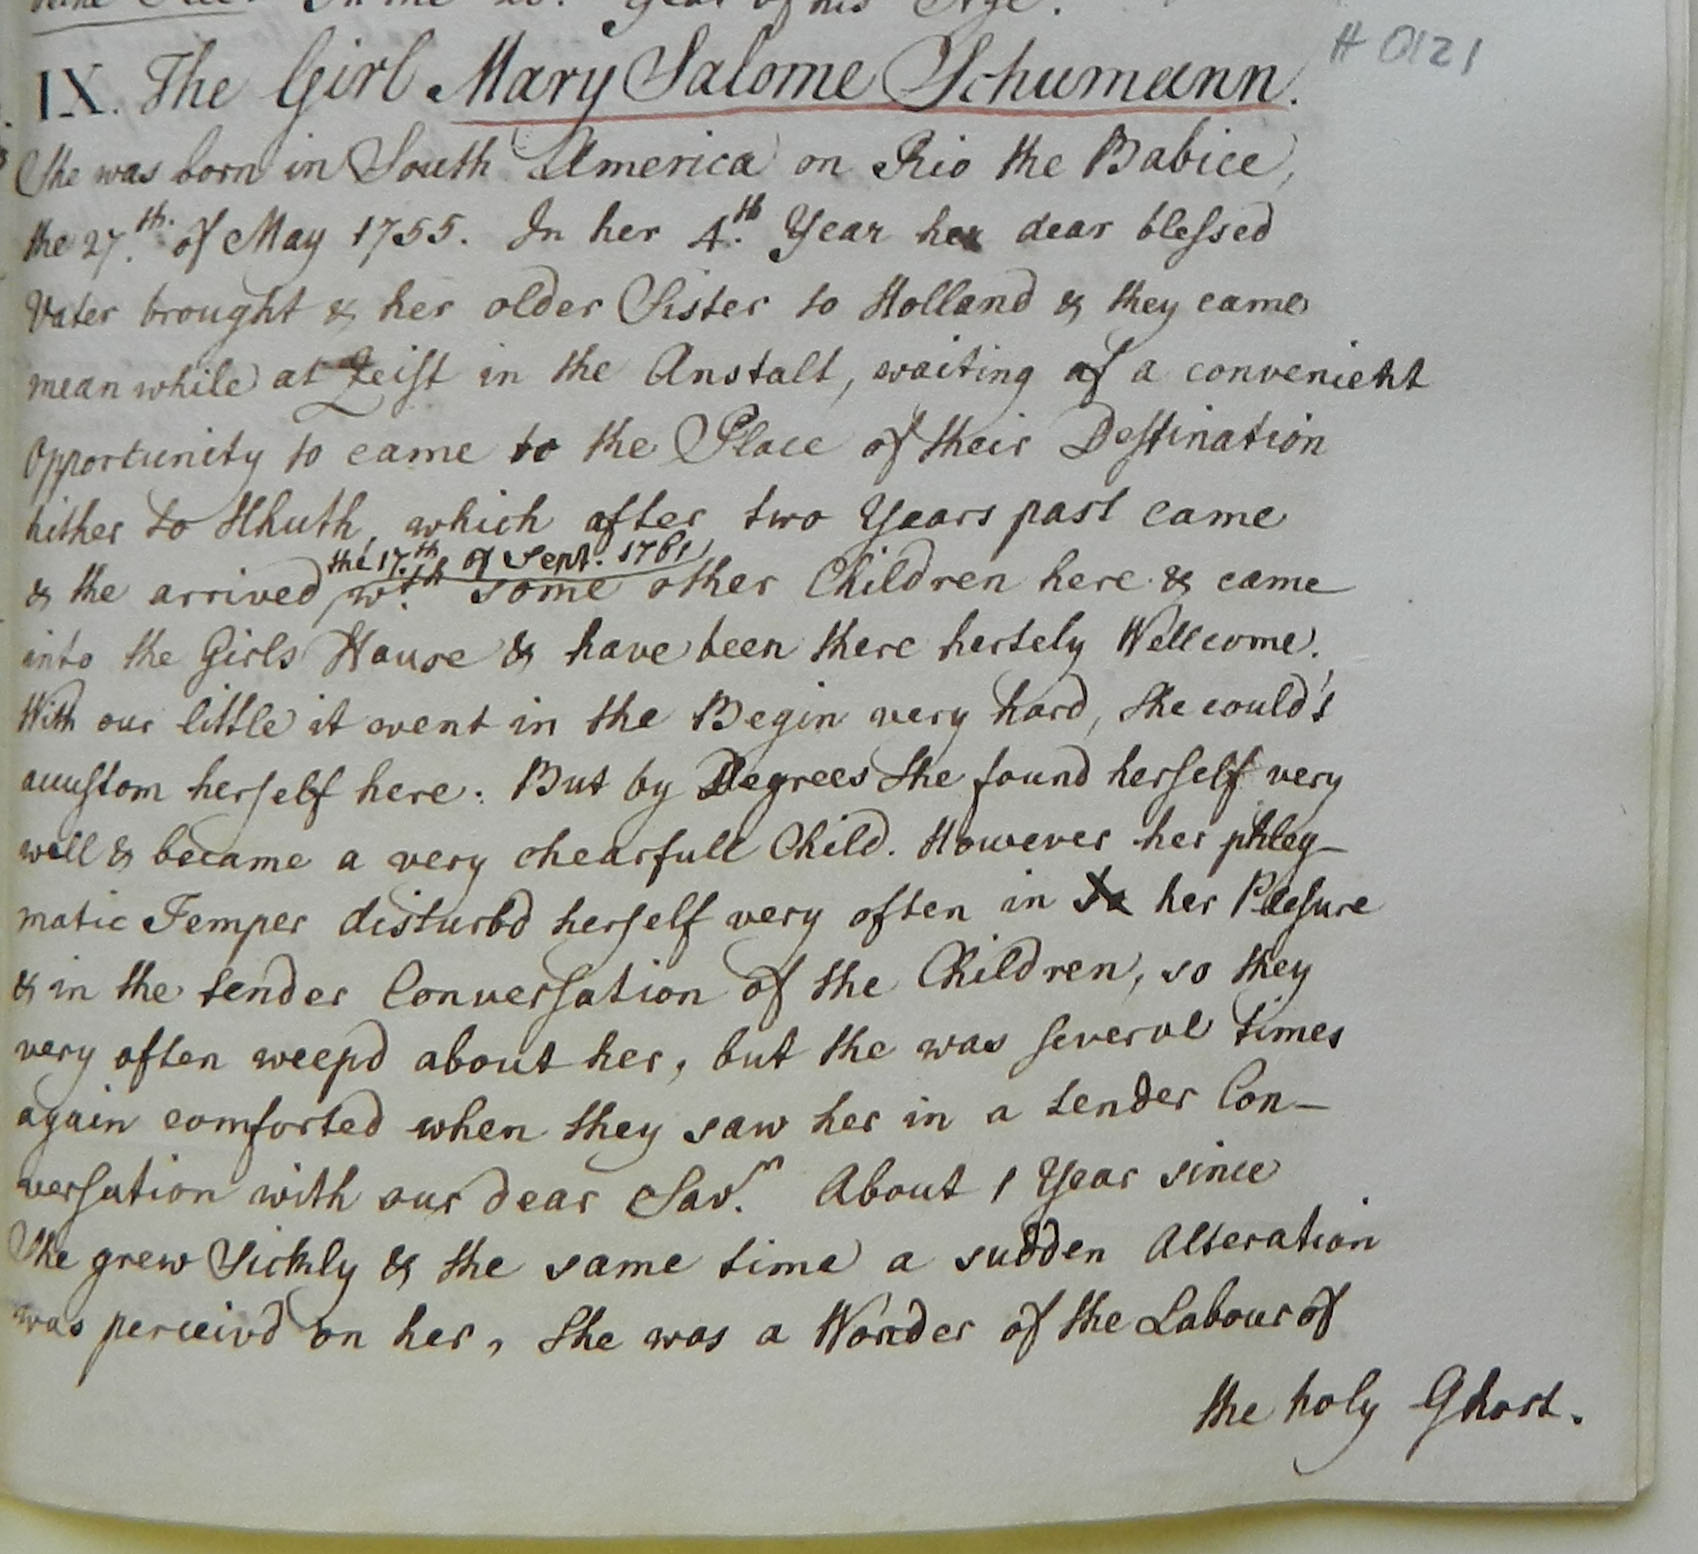 year of his Age.
# 0121
IX. The Girl Mary Salome Schumann.
She was born in South America on Rio the Babice,
the 27.th of May 1755. In her 4.th Year her dear blessed
Vater brought & her older Sister to Holland & they came
mean while at Zeist in the Anstalt, waiting of a convenient
Opportunity to came to the Place of their Destination
hither to Hhuth, which after two Years past came
the 17.th of Sept. 1761
& the arrived w.th some other Children here & came
into the Girls House & have been there hertely Wellcome.
With our little it went in the Begin very hard, She could't
accustom herself here. But by Degrees She found herself very
well & became a very chearfull Child. However her phleg-
matic Temper disturbd herself very often in her Plesure
& in the tender Conversation of the Children, so they
very often weepd about her, but the was several times
again comforted when they saw her in a tender Con-
versation with our dear Sav.r About 1 Year since
She grew Sickly & the same time a sudden Alteration
was perceivd on her, She was a Wonder of the Labour of
the holy Ghost.